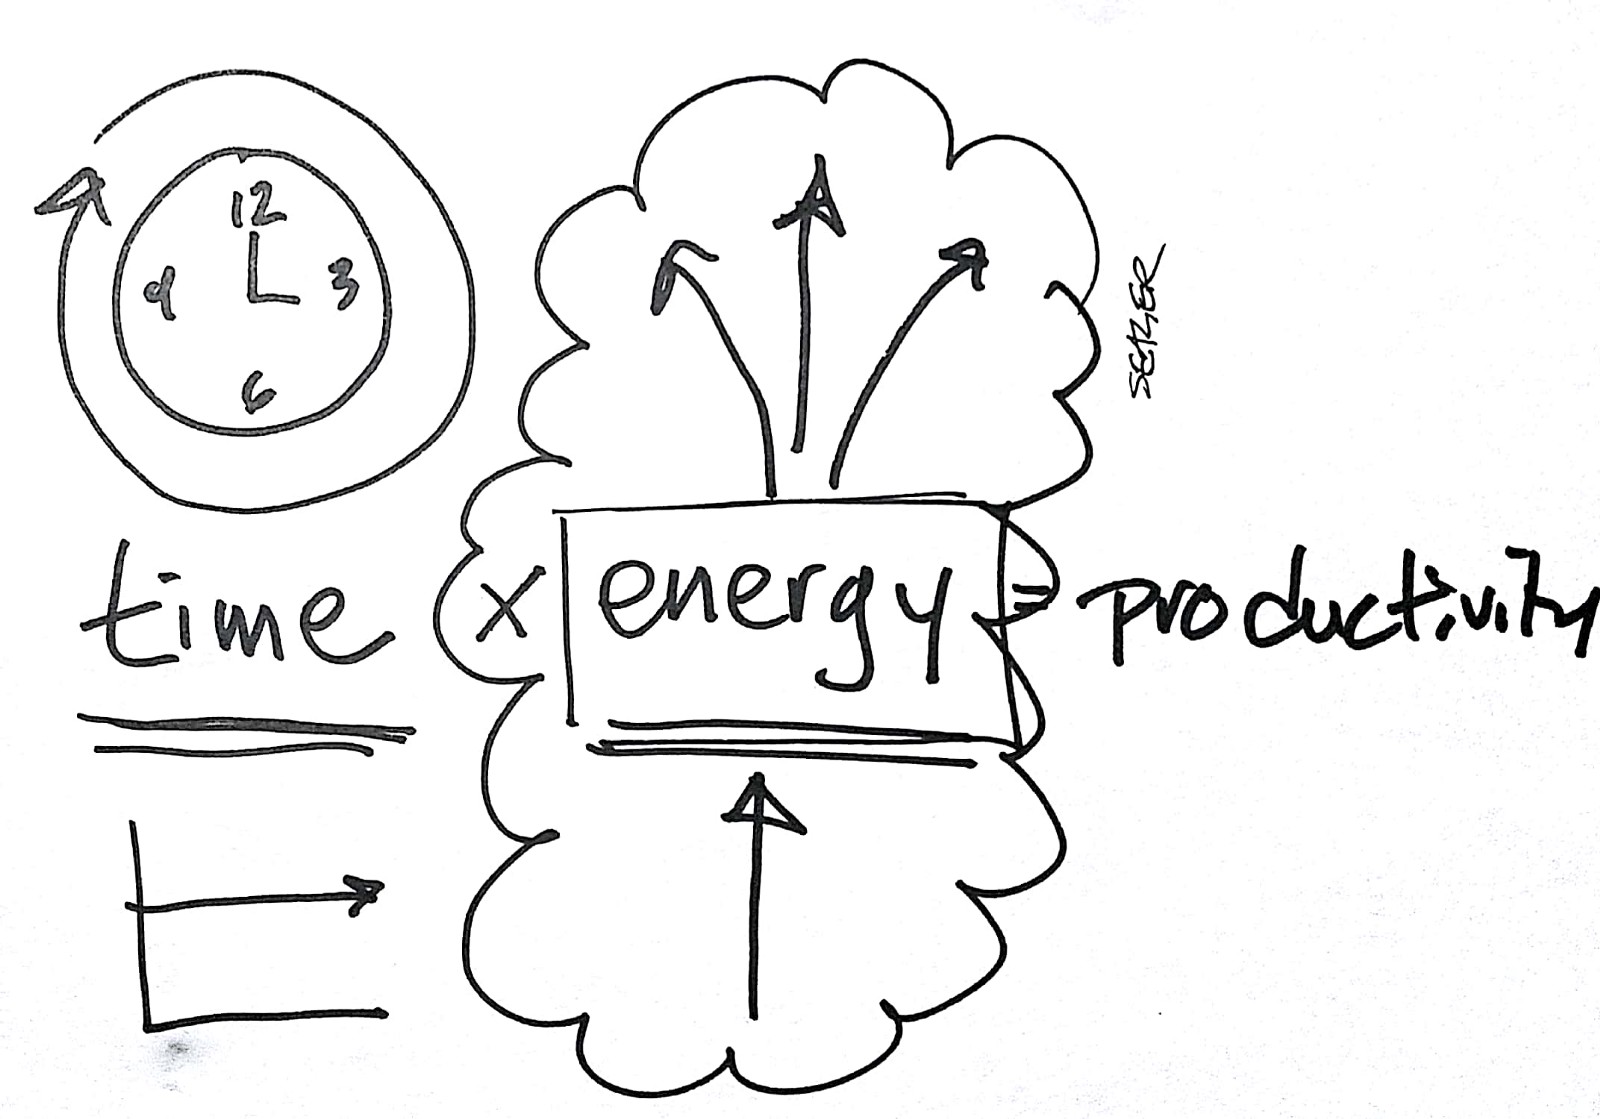 12
9 3
6
SEAZER
time x energy = productivity